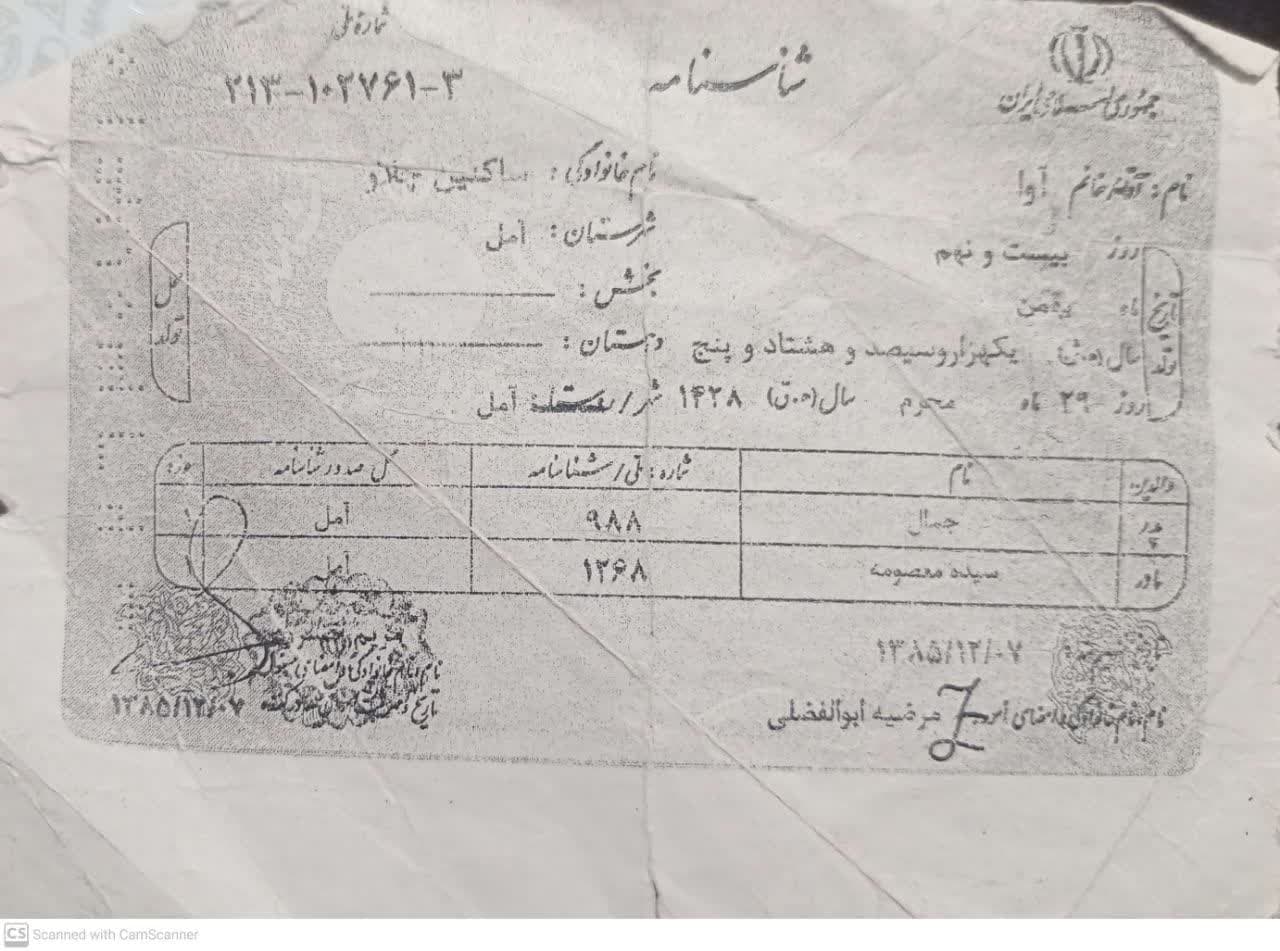 جمهوری اسلامی ایران
شناسنامه
شماره ملی
۲۱۳-۱۰۲۷۶۱-۳
نام: خانم آوا
نام خانوادگی: ساکنین
تاریخ تولد
روز بیست و نهم
ماه بهمن
سال (ه.ش) یکهزار و سیصد و هشتاد و پنج
روز ۲۹ ماه محرم سال (ه.ق) ۱۴۲۸
محل تولد
شهرستان: آمل
بخش:
دهستان:
شهر/روستا: آمل
والدین نام شماره: ملی/شناسنامه محل صدور شناسنامه حوزه
پدر جمال ۹۸۸ آمل
مادر سیده معصومه ۱۲۶۸ آمل
۱۳۸۵/۱۲/۰۷
نام و نام خانوادگی و امضای مرضیه ابوالفضلی
نام و نام خانوادگی و امضای
۱۳۸۵/۱۲/۰۷
CS Scanned with CamScanner